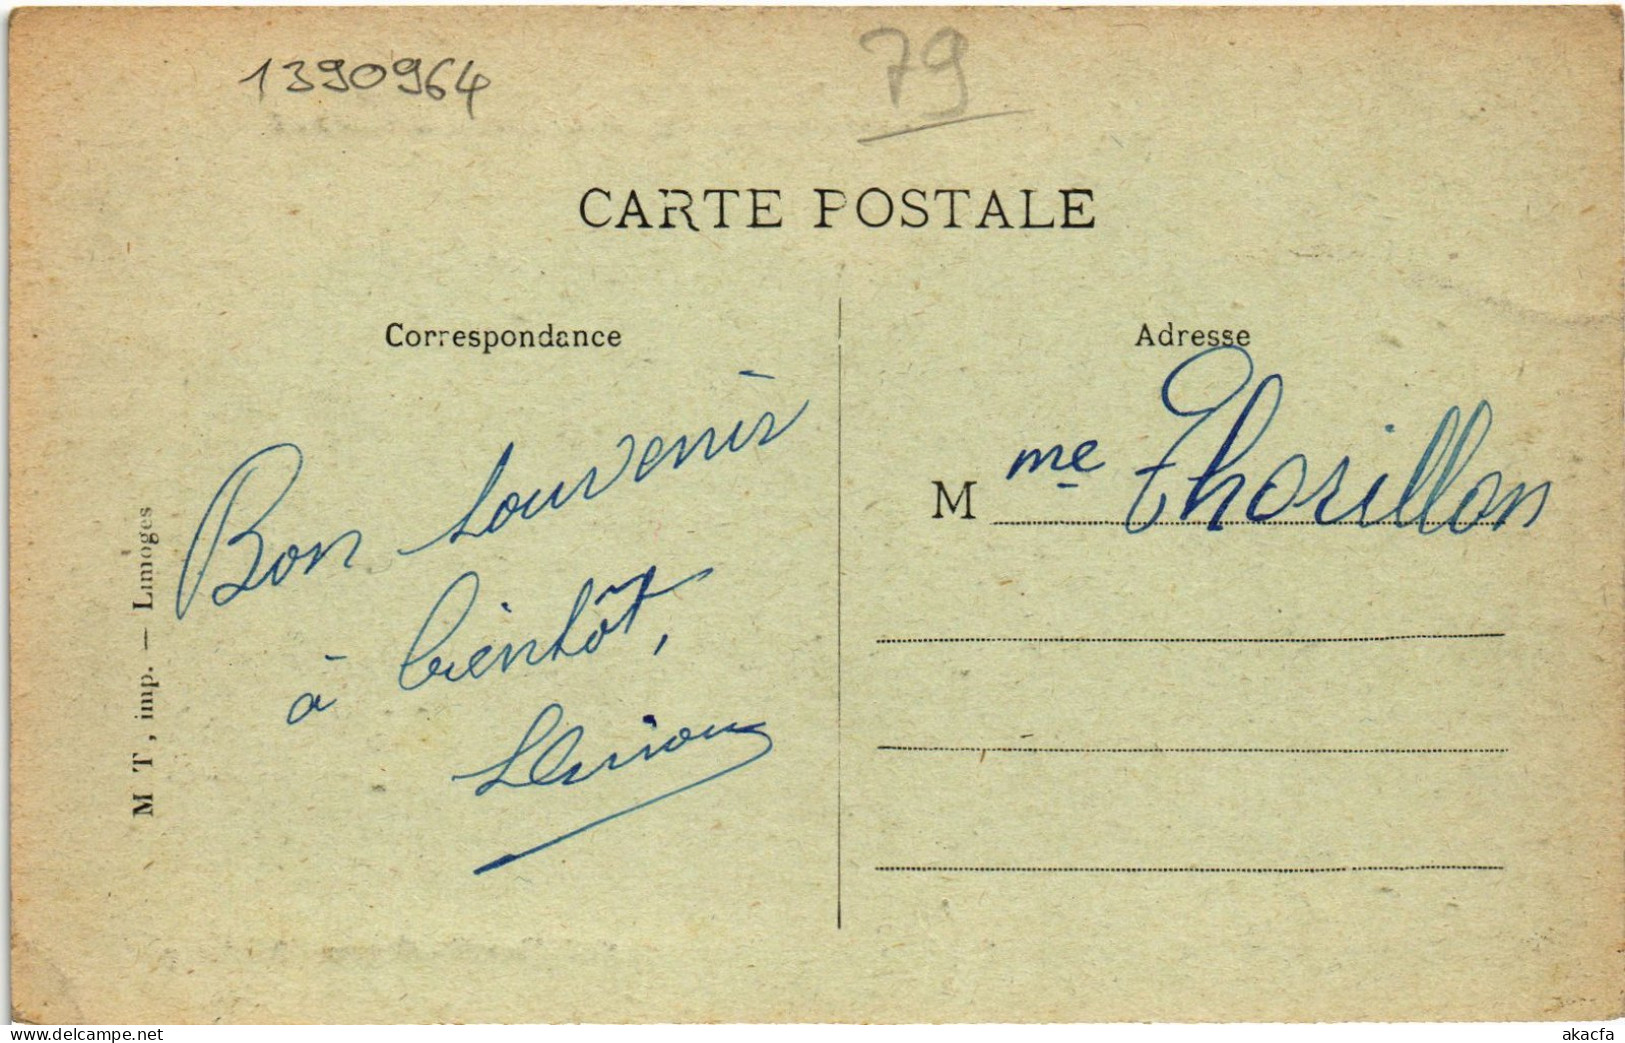 1390964
79
CARTE POSTALE
Correspondance
Adresse
Bon souvenir
à bientôt,
M me Thorillon
M T, imp. — Limoges
www.delcampe.net
akacfa